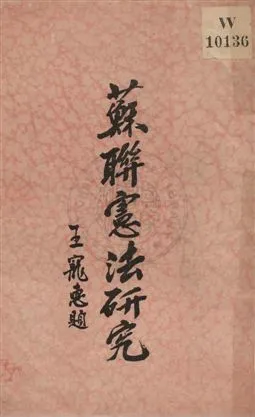 W
10136
蘇聯憲法研究
王寵惠題